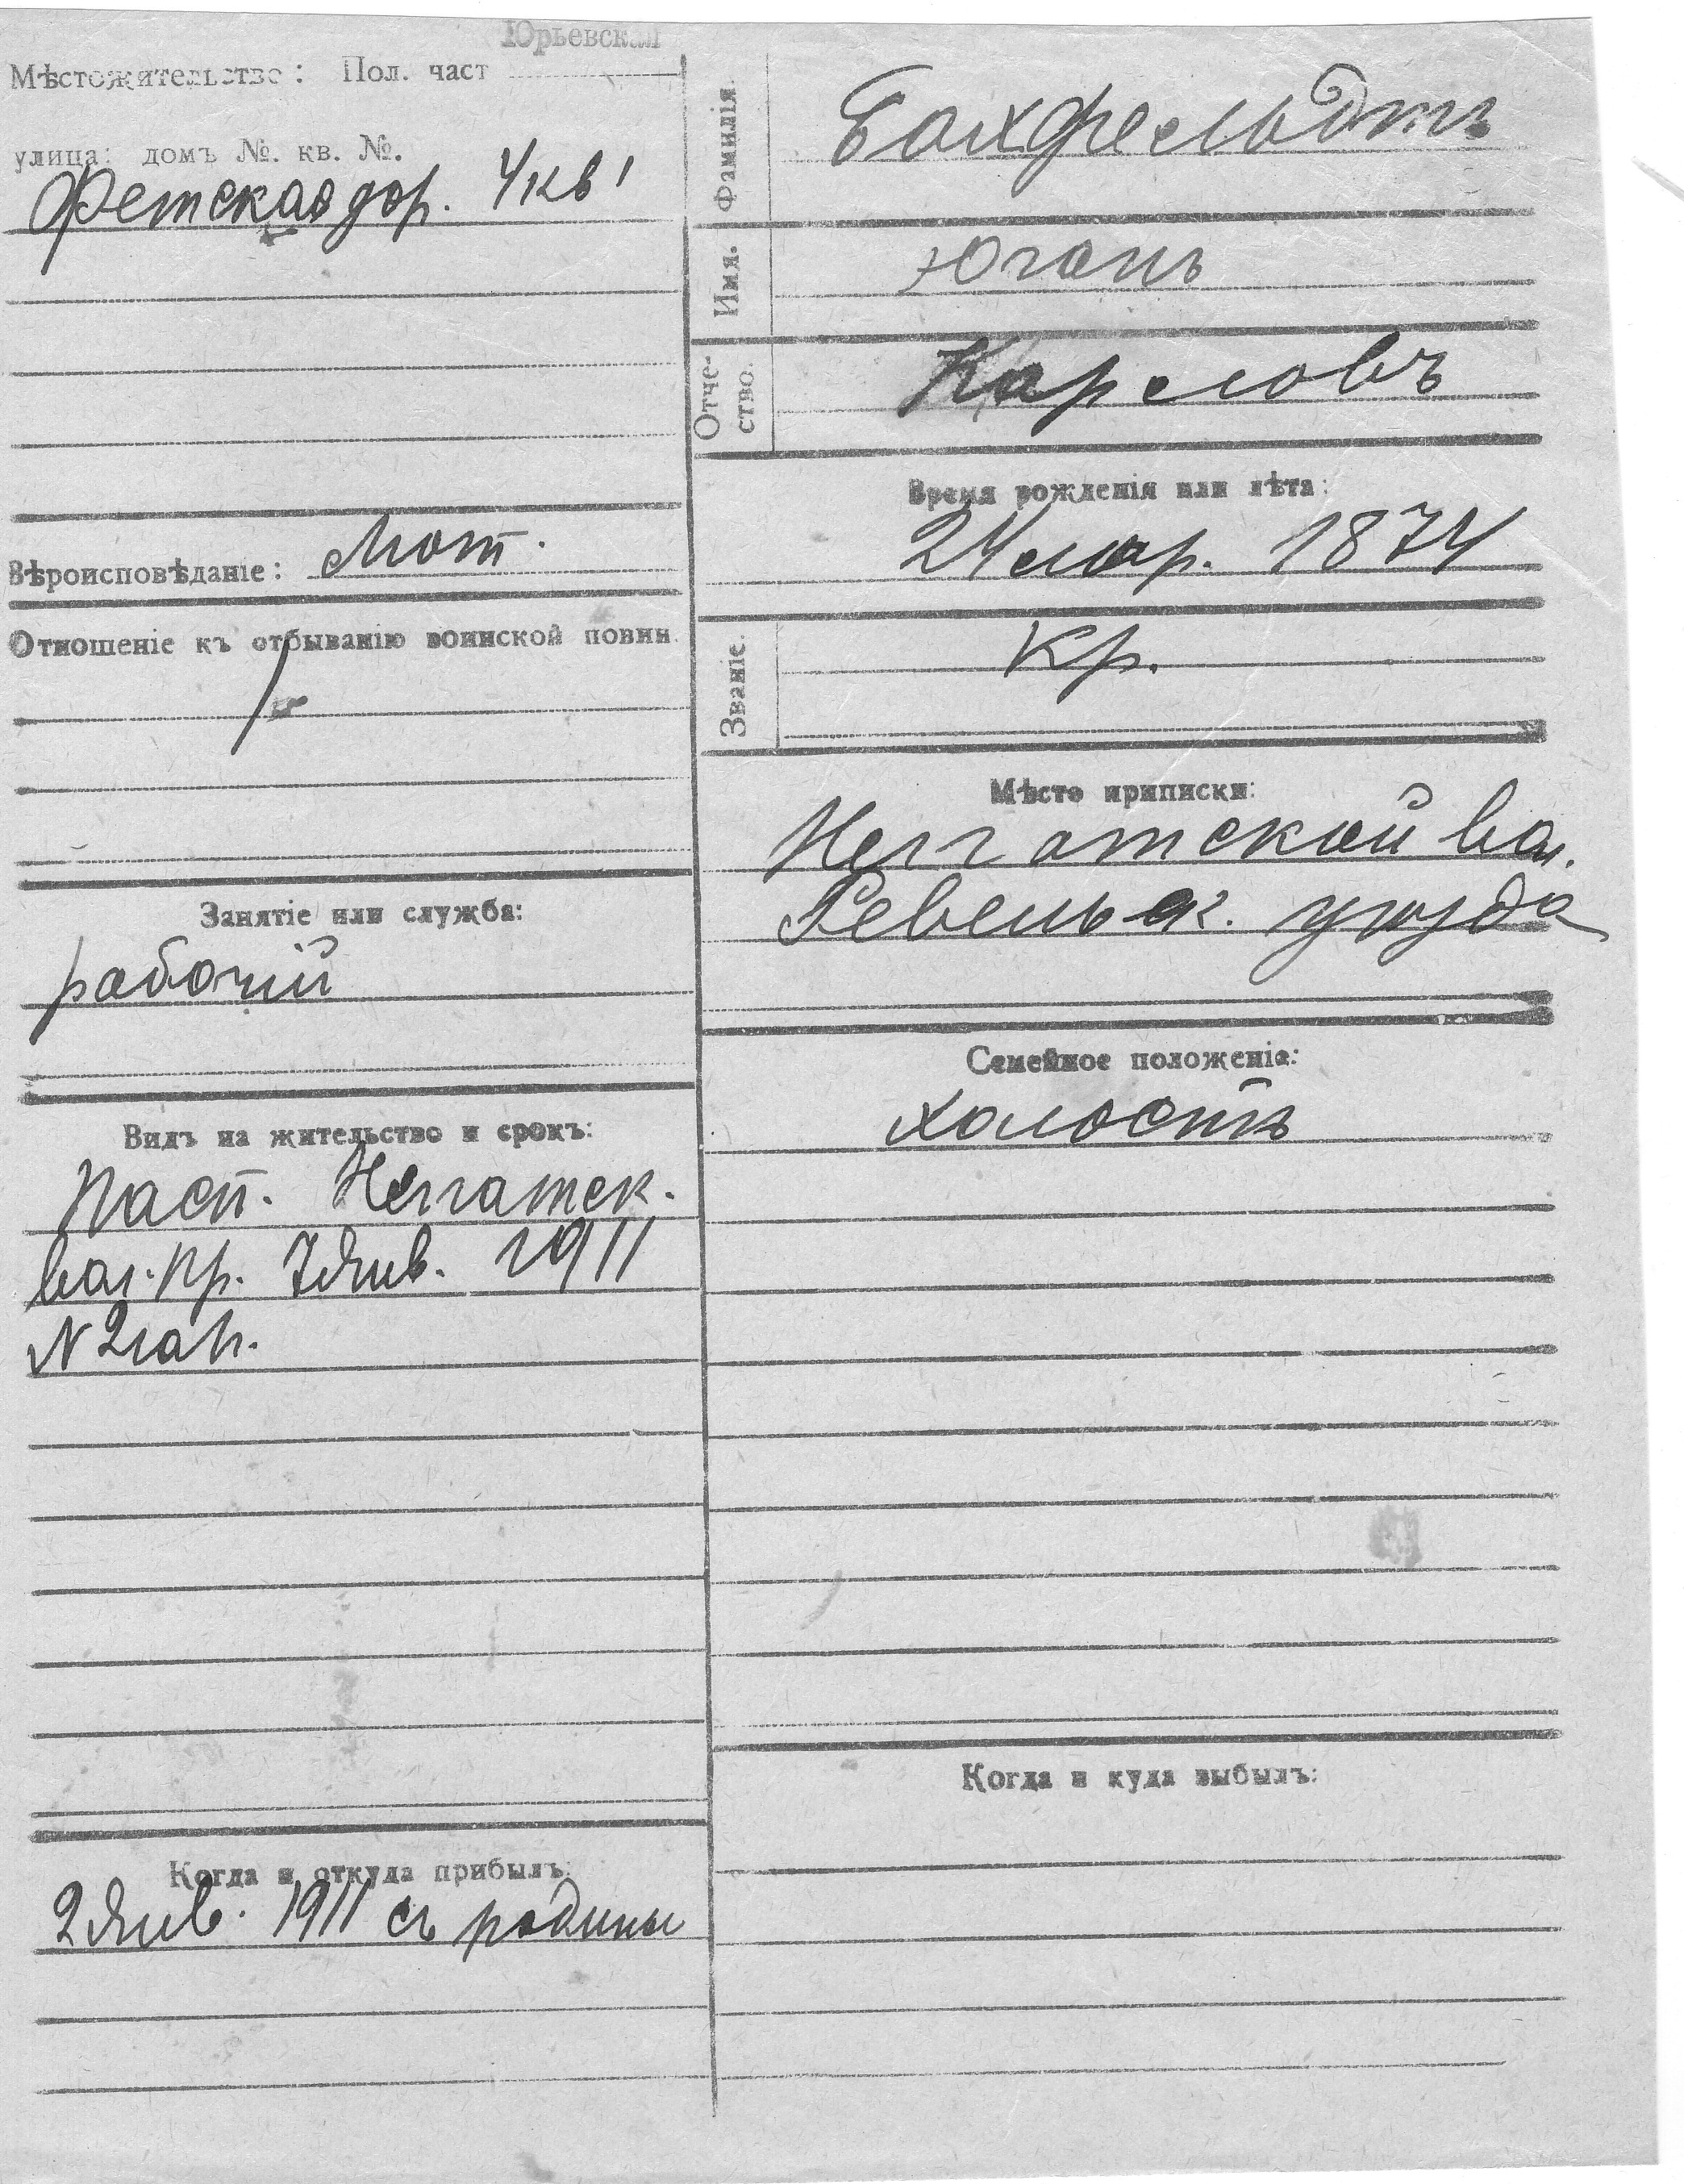 Юрьевская
Мѣстожительство: Пол. част
улица: домъ №. кв. №.
Фетская дор. 4 кв 1
Вѣроисповѣданіе: Лют.
Отношеніе къ отбыванію воинской повин.
Занятіе или служба:
рабочій
Видъ на жительство и срокъ:
Пасп. Неггатск.
вол. пр. 7 Янв. 1911
N 2
Когда и откуда прибылъ:
2 Янв. 1911 съ родины
Фамилія.
Бахфельдтъ
Имя.
Юганъ
Отче-
ство.
Карловъ
Время рожденія или лѣта:
24 мар. 1874
Званіе.
Кр.
Мѣсто приписки:
Неггатской вол.
Ревельск. уѣзда
Семейное положеніе:
холостъ
Когда и куда выбылъ: